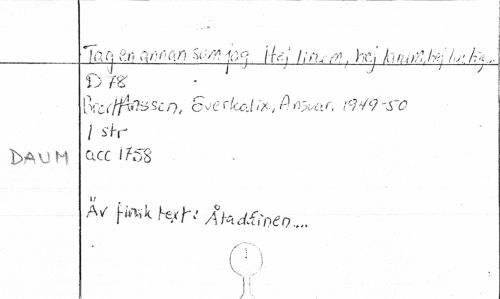 Tag en annan som jag. Hej linom, hej lanum, hej lustig...
D 78
Brest Hanssen, Överkalix, Ansvar. 1949-50
1 str
DAUM acc 1758
Är finsk text: Åtadåinen...